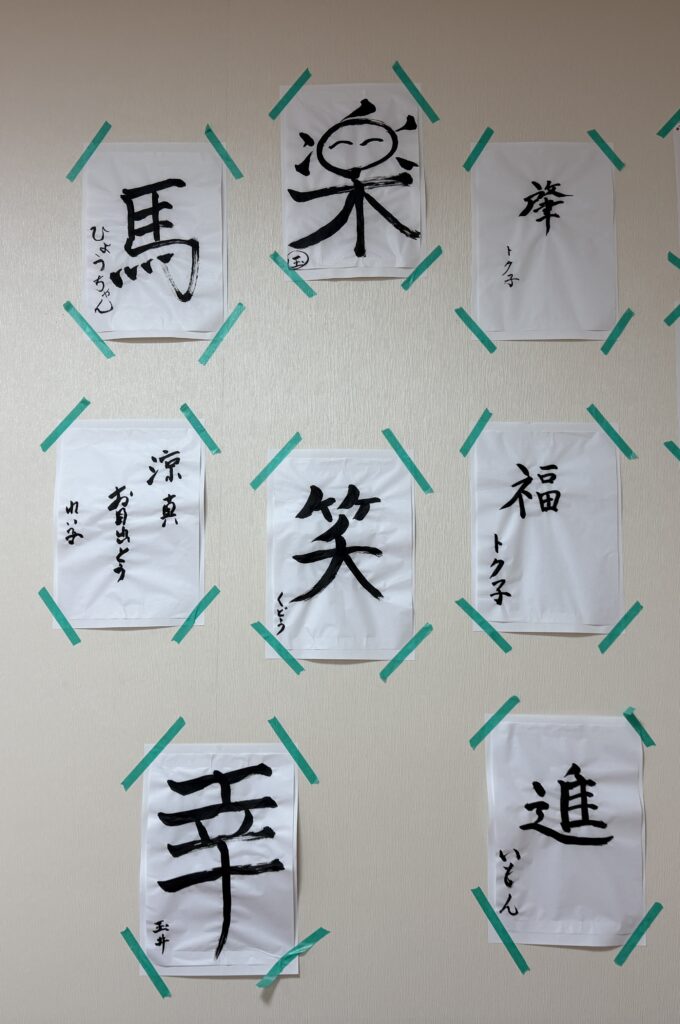 馬
ひょうちゃん
楽
玉
肇
トク子
涼真
お目出とう
れい子
笑
くどう
福
トク子
幸
玉井
進
いもん